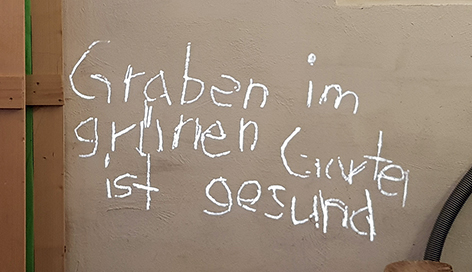 Graben im
grünen Garten
ist gesund